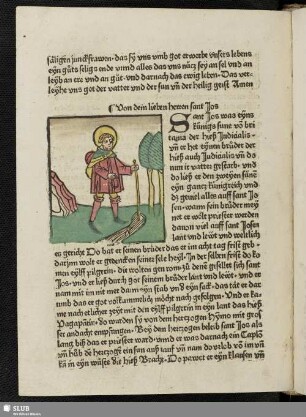 säligen junckfrawen·das sy vns vmb got erwerbe vnsers lebens
eyn gůts seligs ende vnnd alles das vns nücz sey an sel vnd an
leyb an ere vnd an gůt·vnd darnach das ewig leben·Das ver-
leyhe vns got der vatter vnd der sun vñ der heilig geist Amen
Von dem lieben herren sant Jos
Sant Jos was eyns
künigs sune võ bri
tagna der hieß Judicalis
vñ er het eynen brůder der
hieß auch Judicalis vñ do
nun ir vatter gestarb·vnd
do ließ er den zweyen sünen
eyn gancz künigreich vnd
dz geuiel alles auff sant Jo
sen·wann sein brůder mey
net er wölt priester werden
davon viel auff sant Josen
lant vnd leüt·vnd weltlich
es gericht Do bat er seinen brůder das er im acht tag frist geb·
darjnn wolt er gedencken seiner sele heyl·In der selben frist do ko
men eylff pilgrin·die wolten gen rom·zů denẽ gesellet sich sant
Jos·vnd er liesz durch got seinem brůder lant vnd leüt·vnd er
nam mit im nit mer dann eyn stab vnd eyn sack·das tät er dar
umb das er got volkammelich möcht nach gefolgen·Vnd er ka
me nach etlicher zeyt mit den eylff pilgrin in eyn lant das hieß
do warden sy von dem herczogen Hymo mit gros
ser andacht empfangen·Bey dem herczogen beleib sant Jos als
lang biß das er priester ward·vnnd er was darnach ein Caplã
vnd
ka in eyn wüste die hieß Brahic·Do pawet er eyn klausen vñ
SLUB
Wir führen Wissen.